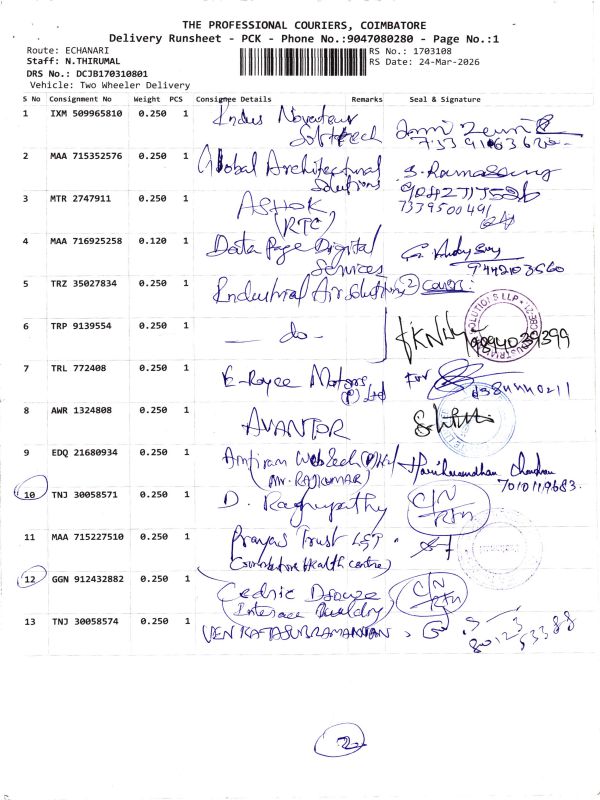 THE PROFESSIONAL COURIERS, COIMBATORE
Delivery Runsheet - PCK - Phone No.:9047080280 - Page No.:1
Route: ECHANARI
RS No.: 1703108
Staff: N.THIRUMAL
RS Date: 24-Mar-2026
DRS No.: DCJB170310801
Vehicle: Two Wheeler Delivery
S No Consignment No Weight PCS Consignee Details Remarks Seal & Signature
1 IXM 509965810 0.250 1 Indus Novateur
Softtech
2 MAA 715352576 0.250 1 Global Architectural S. Ramasamy
Solutions
3 MTR 2747911 0.250 1 ASHOK 7339500491
(RTC)
4 MAA 716925258 0.120 1 Data Page Digital
Services 9442103560
5 TRZ 35027834 0.250 1 Industrial Air Solutions (2) covers.
6 TRP 9139554 0.250 1 - do - 9894039399
7 TRL 772408 0.250 1 Motors For
(P) Ltd
8 AWR 1324808 0.250 1 AVANTOR
9 EDQ 21680934 0.250 1 Amfiram WebTech (P) Ltd
(Mr. RAJKUMAR) 7010119683.
10 TNJ 30058571 0.250 1 D. Raghupathy C/N
Rtn
11 MAA 715227510 0.250 1 Prayas Trust
(Coimbatore Health centre)
12 GGN 912432882 0.250 1 Cedric Dsouza C/N
Interace Rtn
13 TNJ 30058574 0.250 1 VENKATASUBRAMANIAN. 80123
53388
2